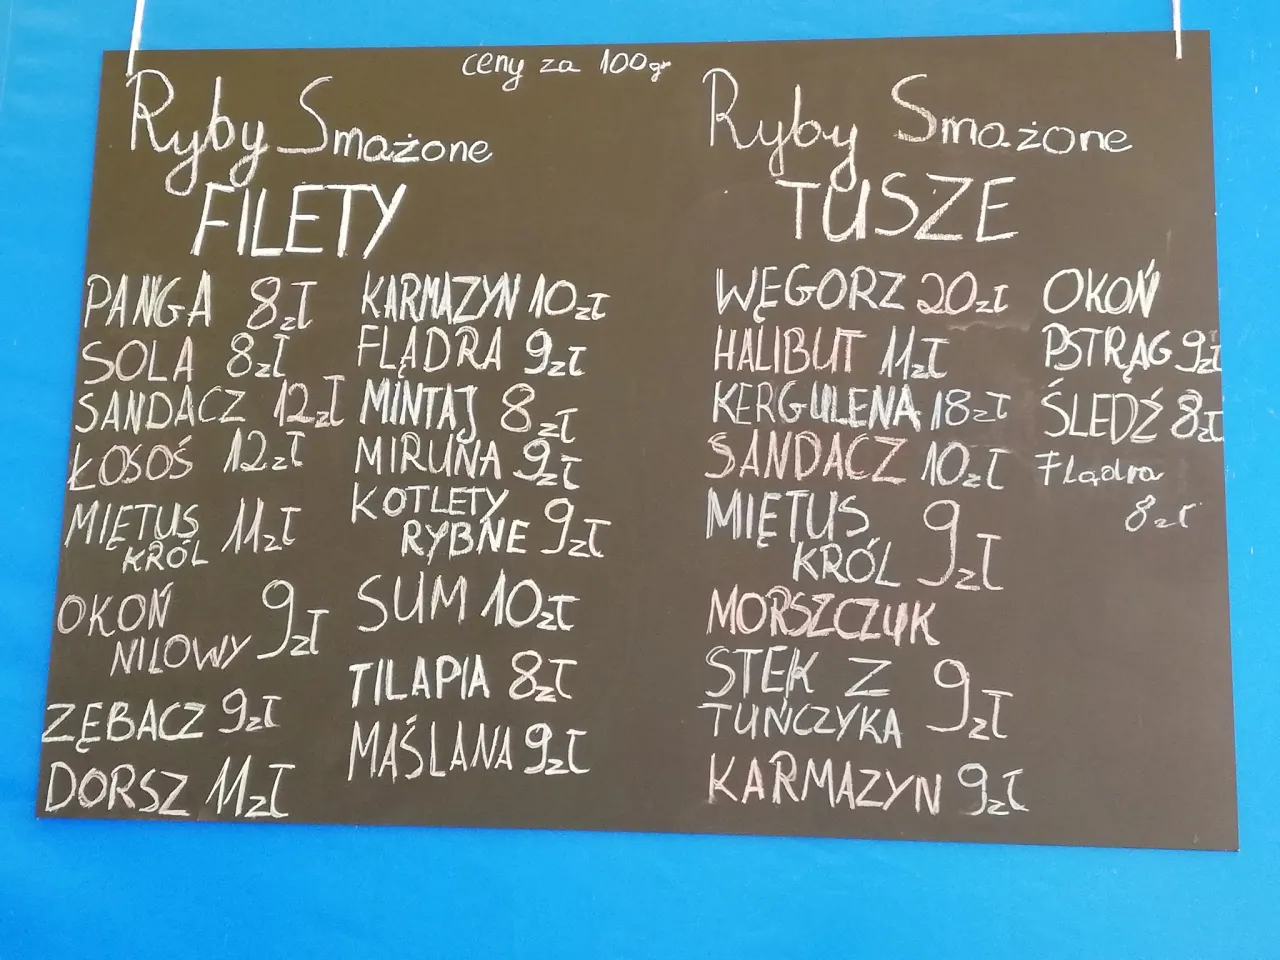 ceny za 100gr
Ryby Smażone
FILETY
PANGA 8zł
SOLA 8zł
SANDACZ 12zł
ŁOSOŚ 12zł
MIĘTUS
KRÓL 11zł
OKOŃ
NILOWY 9zł
ZĘBACZ 9zł
DORSZ 11zł
KARMAZYN 10zł
FLĄDRA 9zł
MINTAJ 8zł
MIRUNA 9zł
KOTLETY
RYBNE 9zł
SUM 10zł
TILAPIA 8zł
MAŚLANA 9zł
Ryby Smażone
TUSZE
WĘGORZ 20zł
HALIBUT 11zł
KERGULENA 18zł
SANDACZ 10zł
MIĘTUS
KRÓL 9zł
MORSZCZUK
STEK Z
TUŃCZYKA 9zł
KARMAZYN 9zł
OKOŃ
PSTRĄG 9zł
ŚLEDŹ 8zł
Flądra
8zł